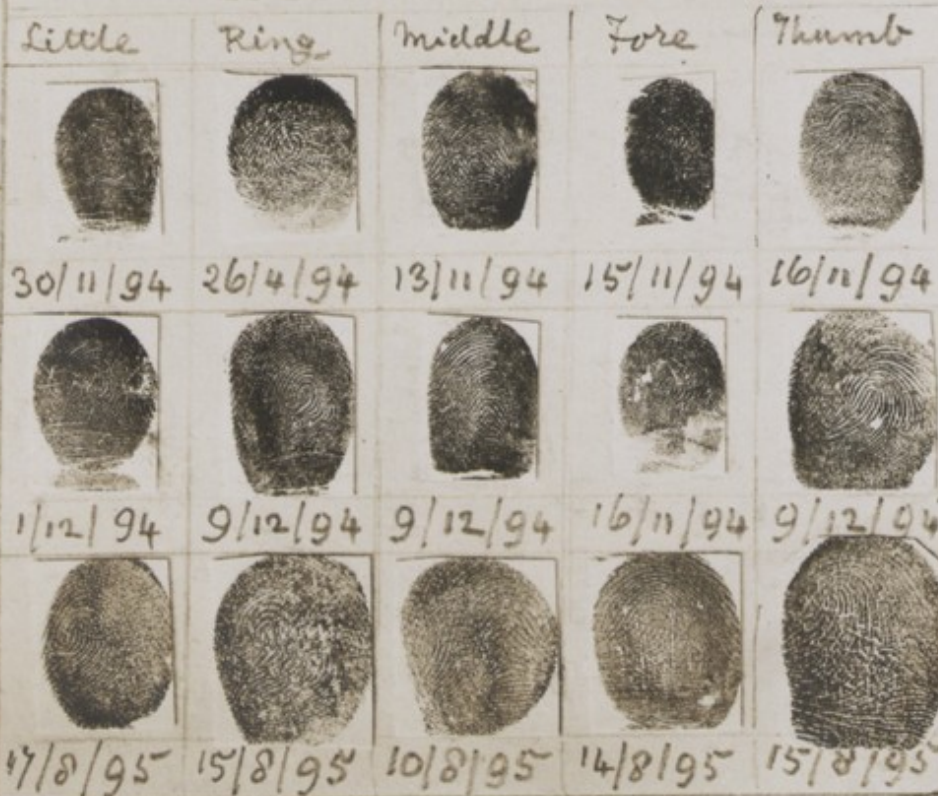 Little Ring Middle Fore Thumb
30/11/94 26/4/94 13/11/94 15/11/94 16/11/94
1/12/94 9/12/94 9/12/94 16/11/94 9/12/94
17/8/95 15/8/95 10/8/95 14/8/95 15/8/95